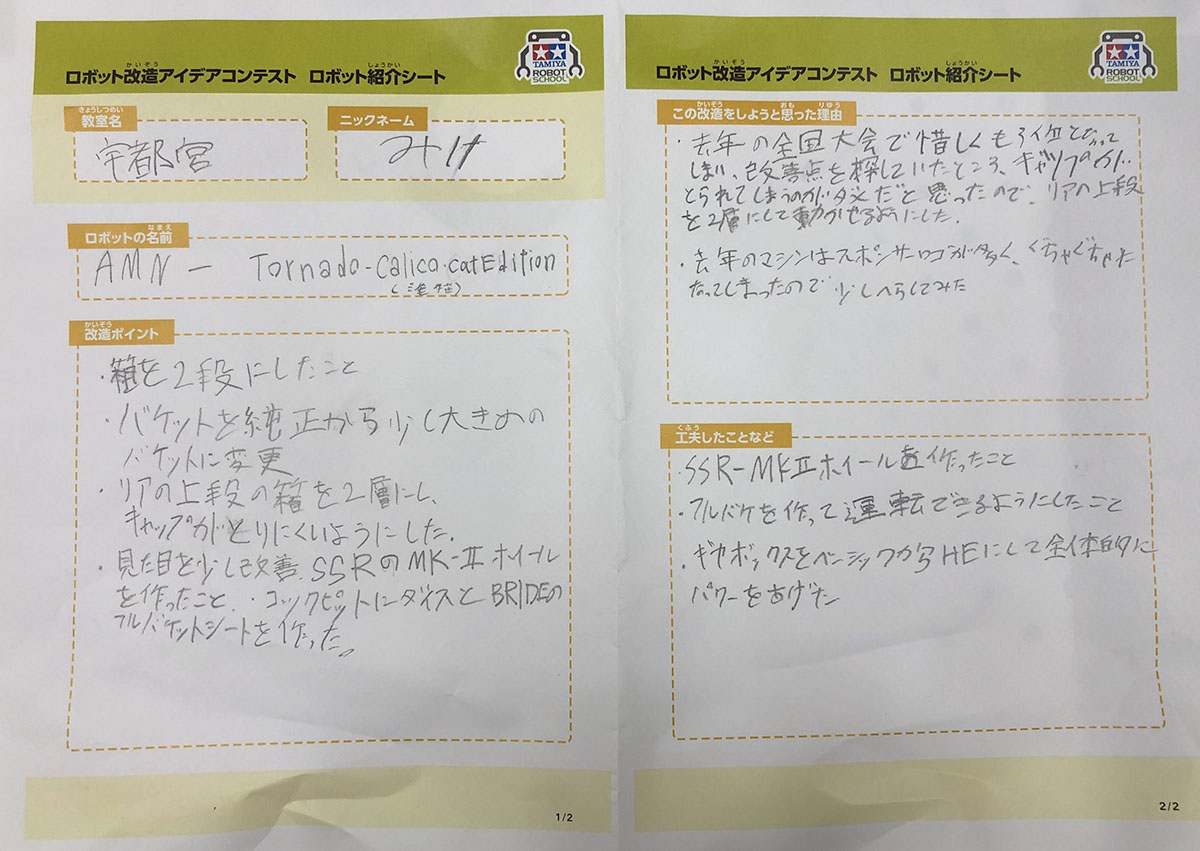 ロボット改造アイデアコンテスト ロボット紹介シート
TAMIYA
ROBOT
SCHOOL
教室名
宇都宮
ニックネーム
みけ
ロボットの名前
AMN - Tornado-Calico.catEdition
改造ポイント
・箱を2段にしたこと
・バケットを純正から少し大きめの
バケットに変更
・リアの上段の箱を2層にし、
キャップがとりにくいようにした.
・見た目を少し改善.SSRのMK-Ⅱホイール
を作ったこと.・コックピットにダイスとBRIDEの
フルバケットシートを作った。
1/2
ロボット改造アイデアコンテスト ロボット紹介シート
TAMIYA
ROBOT
SCHOOL
この改造をしようと思った理由
・去年の全国大会で惜しくも3位となって
しまい、改善点を探していたところ、キャップのが、
とられてしまうのがダメだと思ったので、リアの上段
を2層にして動かせるようにした.
・去年のマシンはスポンサーロゴが多く、ぐちゃぐちゃに
なってしまったので少しへらしてみた
工夫したことなど
・SSR-MKⅡホイールを作ったこと
・フルバケを作って運転できるようにしたこと
・ギヤボックスをベーシックからHEにして全体的に
パワーをあげた
2/2